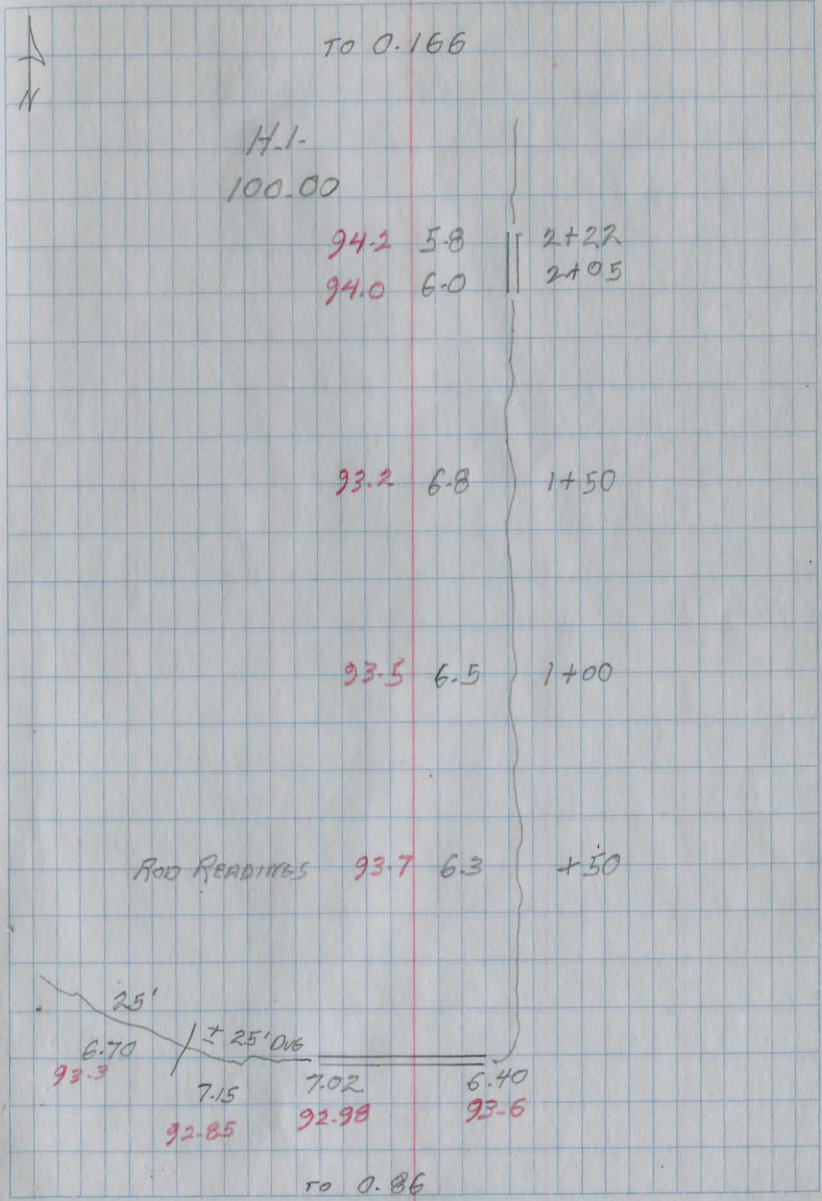 TO 0.166
N
H.I.
100.00
94.2 5.8 2+22
94.0 6.0 2+05
93.2 6.8 1+50
93.5 6.5 1+00
ROD READINGS 93.7 6.3 +50
25'
± 25' DUG
6.70
93.3
7.15
92.85
7.02
92.98
6.40
93.6
TO 0.86